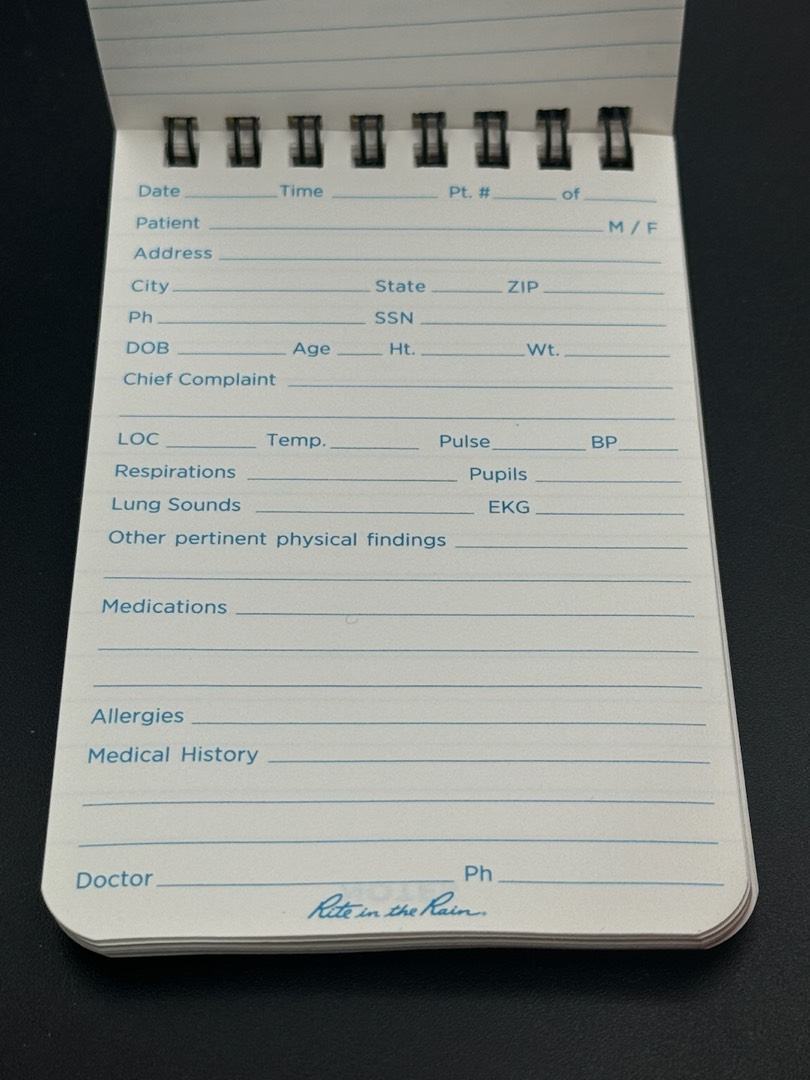 Date Time Pt. # of
Patient M / F
Address
City State ZIP
Ph SSN
DOB Age Ht. Wt.
Chief Complaint
LOC Temp. Pulse BP
Respirations Pupils
Lung Sounds EKG
Other pertinent physical findings
Medications
Allergies
Medical History
Doctor Ph
Rite in the Rain.